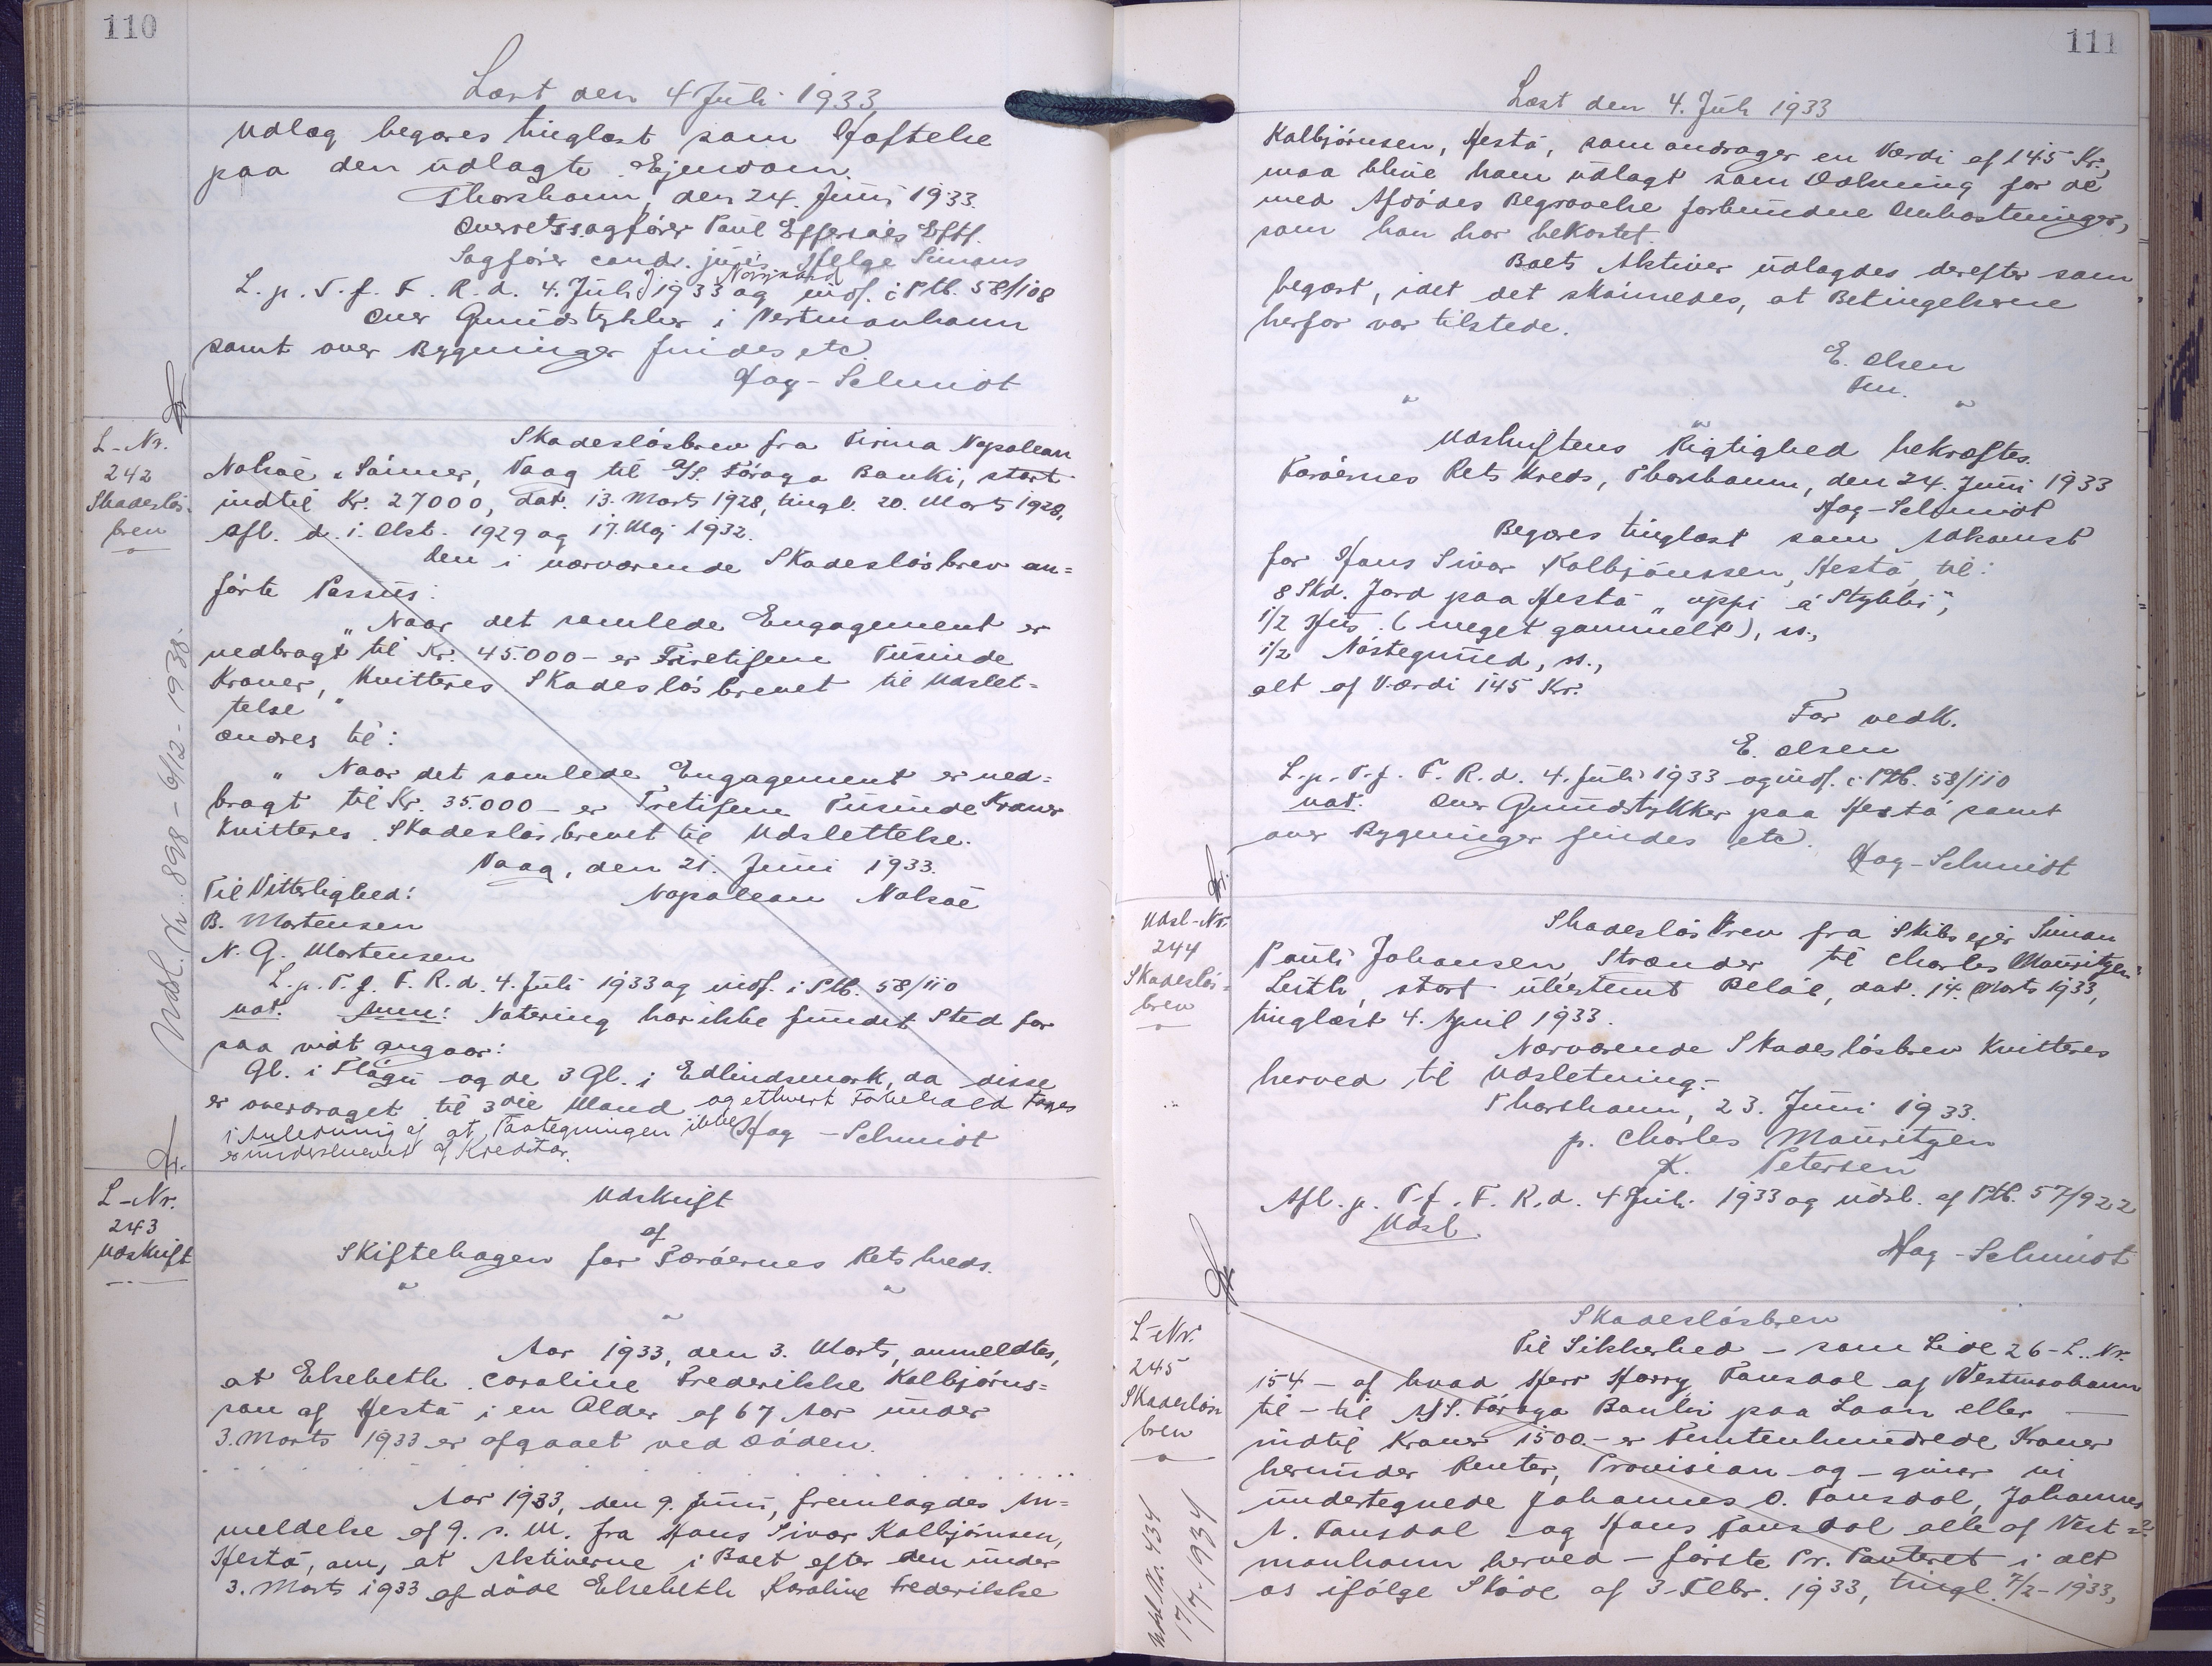 110
Læst den 4 Juli 1933
Udlæg begæres tinglæst som Hæftelse
paa den udlagte Ejendom.
Thorshavn, den 24. Juni 1933.
Overretssagfører Poul Effersøes Eftf.
Sagfører cand. juris Helge Simons
L. p. T. f. F. R. d. 4. Juli 1933 og indf. i Ptb. 58/108
Over Grundstykker i Vestmanhavn
samt over Bygninger findes etc.
Hag-Schmidt
L-Nr.
242
Skadesløs-
brev
Udsl. Nr. 898 - 6/12 - 1938.
Skadesløsbrev fra Firma Napoleon
Nolsøe & Sønner, Vaag til A/S. Føroya Banki, stort
indtil Kr. 27000, dat. 13. Marts 1928, tingl. 20. Marts 1928,
afl. d. 1. Okt. 1929 og 17. Maj 1932.
Den i nærværende Skadesløsbrev an=
førte Passus:
"Naar det samlede Engagement er
nedbragt til Kr. 45.000 - er Firetifem Tusinde
Kroner, kvitteres Skadesløsbrevet til Udslet=
telse"
ændres til:
"Naar det samlede Engagement er ned=
bragt til Kr. 35.000 - er Tretifem Tusinde Kroner
kvitteres Skadesløsbrevet til Udslettelse.
Vaag, den 21. Juni 1933.
Til Vitterlighed:
Napoleon Nolsøe
B. Mortensen
N. G. Mortensen
L. p. T. f. F. R. d. 4. Juli 1933 og indf. i Ptb. 58/110
not. Anm: Notering har ikke fundet Sted for
saa vidt angaar:
Gl. i Fløgu og de 3 Gl. i Edlindsmark, da disse
er overdraget til 3die Mand og ethvert Forbehold tages
i Anledning af at Paategningen ikke
er underskrevet af Kreditor.
Hag-Schmidt
L-Nr.
243
Udskrift
Udskrift
af
Skiftebogen for Færøernes Retskreds.
Aar 1933, den 3. Marts, anmeldtes,
at Elsebeth Caroline Frederikke Kolbjørns=
son af Hestø i en Alder af 67 Aar under
3. Marts 1933 er afgaaet ved Døden.
Aar 1933, den 9. Juni, fremlagdes An=
meldelse af 9. s. M. fra Hans Sivar Kolbjørnsen,
Hestø, om, at Aktiverne i Boet efter den under
3. Marts 1933 afdøde Elsebeth Karoline Frederikke
111
Læst den 4. Juli 1933
Kolbjørnsen, Hestø, som andrager en Værdi af 145 Kr.,
maa blive ham udlagt som Dækning for de
med Afdødes Begravelse forbundne Omkostninger,
som han har bekostet.
Boets Aktiver udlagdes derefter som
begært, idet det skønnedes, at Betingelserne
herfor var tilstede.
E. Olsen
Fm.
Udskriftens Rigtighed bekræftes.
Færøernes Retskreds, Thorshavn, den 24. Juni 1933
Hag-Schmidt
Begæres tinglæst som Adkomst
for Hans Sivar Kolbjørnssen, Hestø, til:
8 Skd. Jord paa Hestø "uppi á Stykki",
1/2 Hus (meget gammelt), ss.,
1/2 Nøstegrund, ss.,
alt af Værdi 145 Kr.
For vedk.
E. Olsen
L. p. T. f. F. R. d. 4. Juli 1933 og indf. i Ptb. 58/110
not. Over Grundstykker paa Hestø samt
over Bygninger findes etc.
Hag-Schmidt
Udsl-Nr.
244
Skadesløs=
brev
Skadesløsbrev fra Skibsejer Simon
Pauli Johansen, Strænder til Charles Mauritzen
Leith, stort ubestemt Beløb, dat. 14. Marts 1933,
tinglæst 4. April 1933.
Nærværende Skadesløsbrev kvitteres
herved til Udsletning.
Thorshavn, 23. Juni 1933.
p. Charles Mauritzen
K. Petersen
Afl. p. T. f. F. R. d. 4 Juli 1933 og udsl. af Ptb. 57/922
Udsl.
Hag-Schmidt
L-Nr.
245
Skadesløs
brev
Udsl. Nr. 434
17/7-1934
Skadesløsbrev
Til Sikkerhed - som Side 26 - L. Nr.
154 - af hvad Herr Harry Fansdal af Vestmanhavn
til - til A/S. Føroya Banki paa Laan eller
indtil Kroner 1500.- er Femtenhundrede Kroner
herunder Renter, Provision og - giver vi
undertegnede Johannes O. Fansdal, Johannes
A. Fansdal og Hans Fansdal alle af Vest=
manhavn herved - første Pr. Panteret i det
os ifølge Skøde af 3-Febr. 1933, tingl. 7/2-1933,